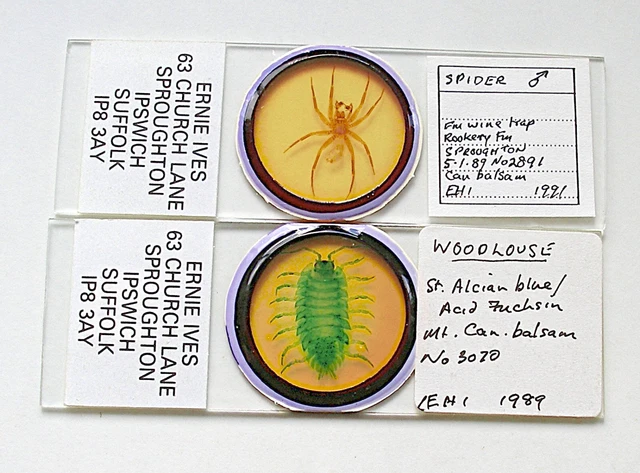 ERNIE IVES
63 CHURCH LANE
SPROUGHTON
IPSWICH
SUFFOLK
IP8 3AY
SPIDER ♂
Fm wine trap
Rookery Fm
SPROUGHTON
5-1.89 No2891
Can balsam
EHI 1991
ERNIE IVES
63 CHURCH LANE
SPROUGHTON
IPSWICH
SUFFOLK
IP8 3AY
WOODLOUSE
St. Alcian blue/
Acid Fuchsin
Mt. Can. balsam
No 3070
EHI 1989